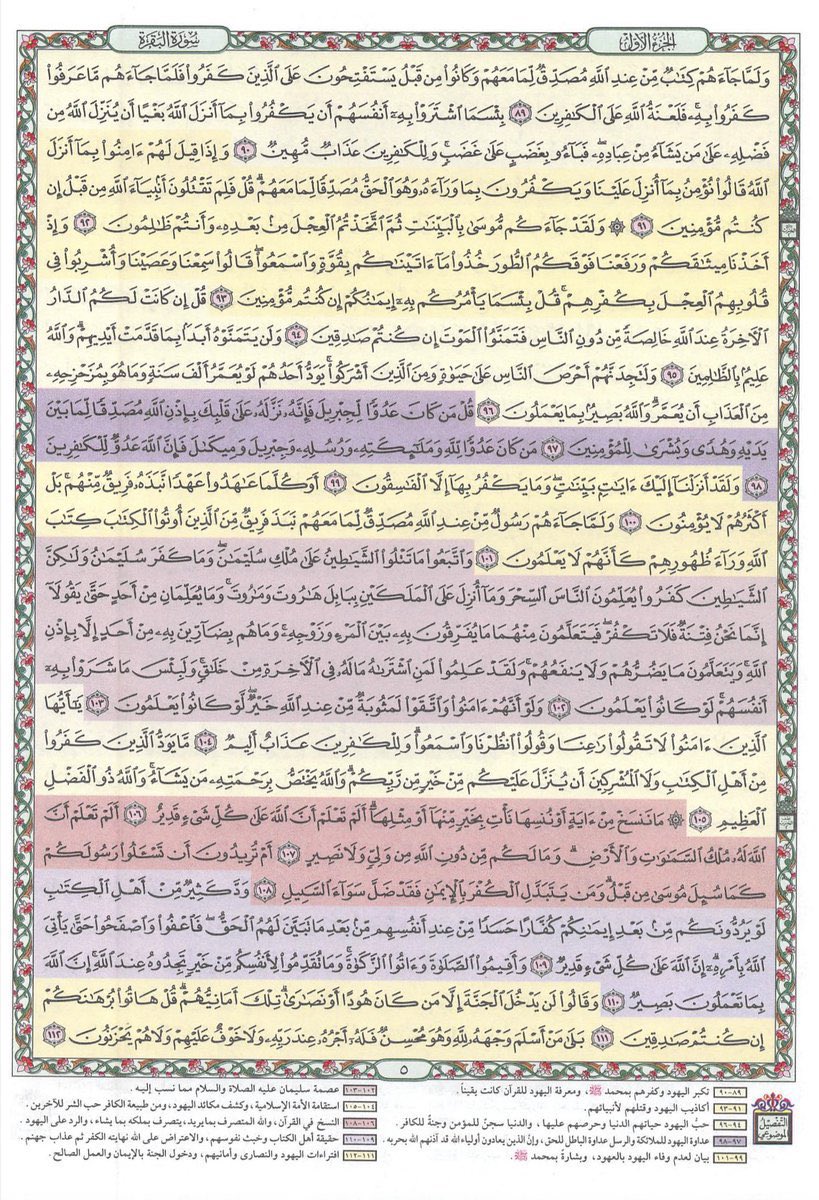 الجزء الأول
سورة البقرة
وَلَمَّا جَاءَهُمْ كِتَٰبٌ مِّنْ عِندِ ٱللَّهِ مُصَدِّقٌ لِّمَا مَعَهُمْ وَكَانُوا۟ مِن قَبْلُ يَسْتَفْتِحُونَ عَلَى ٱلَّذِينَ كَفَرُوا۟ فَلَمَّا جَاءَهُم مَّا عَرَفُوا۟
كَفَرُوا۟ بِهِۦ فَلَعْنَةُ ٱللَّهِ عَلَى ٱلْكَٰفِرِينَ ٨٩ بِئْسَمَا ٱشْتَرَوْا۟ بِهِۦ أَنفُسَهُمْ أَن يَكْفُرُوا۟ بِمَا أَنزَلَ ٱللَّهُ بَغْيًا أَن يُنَزِّلَ ٱللَّهُ مِن
فَضْلِهِۦ عَلَىٰ مَن يَشَاءُ مِنْ عِبَادِهِۦ فَبَاءُو بِغَضَبٍ عَلَىٰ غَضَبٍ وَلِلْكَٰفِرِينَ عَذَابٌ مُّهِينٌ ٩٠ وَإِذَا قِيلَ لَهُمْ ءَامِنُوا۟ بِمَا أَنزَلَ
ٱللَّهُ قَالُوا۟ نُؤْمِنُ بِمَا أُنزِلَ عَلَيْنَا وَيَكْفُرُونَ بِمَا وَرَاءَهُۥ وَهُوَ ٱلْحَقُّ مُصَدِّقًا لِّمَا مَعَهُمْ قُلْ فَلِمَ تَقْتُلُونَ أَنۢبِيَاءَ ٱللَّهِ مِن قَبْلُ إِن
كُنتُم مُّؤْمِنِينَ ٩١ ۞ وَلَقَدْ جَاءَكُم مُّوسَىٰ بِٱلْبَيِّنَٰتِ ثُمَّ ٱتَّخَذْتُمُ ٱلْعِجْلَ مِنۢ بَعْدِهِۦ وَأَنتُمْ ظَٰلِمُونَ ٩٢ وَإِذْ
أَخَذْنَا مِيثَٰقَكُمْ وَرَفَعْنَا فَوْقَكُمُ ٱلطُّورَ خُذُوا۟ مَا ءَاتَيْنَٰكُم بِقُوَّةٍ وَٱسْمَعُوا۟ قَالُوا۟ سَمِعْنَا وَعَصَيْنَا وَأُشْرِبُوا۟ فِى
قُلُوبِهِمُ ٱلْعِجْلَ بِكُفْرِهِمْ قُلْ بِئْسَمَا يَأْمُرُكُم بِهِۦ إِيمَٰنُكُمْ إِن كُنتُم مُّؤْمِنِينَ ٩٣ قُلْ إِن كَانَتْ لَكُمُ ٱلدَّارُ
ٱلْءَاخِرَةُ عِندَ ٱللَّهِ خَالِصَةً مِّن دُونِ ٱلنَّاسِ فَتَمَنَّوُا۟ ٱلْمَوْتَ إِن كُنتُمْ صَٰدِقِينَ ٩٤ وَلَن يَتَمَنَّوْهُ أَبَدًۢا بِمَا قَدَّمَتْ أَيْدِيهِمْ وَٱللَّهُ
عَلِيمٌۢ بِٱلظَّٰلِمِينَ ٩٥ وَلَتَجِدَنَّهُمْ أَحْرَصَ ٱلنَّاسِ عَلَىٰ حَيَوٰةٍ وَمِنَ ٱلَّذِينَ أَشْرَكُوا۟ يَوَدُّ أَحَدُهُمْ لَوْ يُعَمَّرُ أَلْفَ سَنَةٍ وَمَا هُوَ بِمُزَحْزِحِهِۦ
مِنَ ٱلْعَذَابِ أَن يُعَمَّرَ وَٱللَّهُ بَصِيرٌۢ بِمَا يَعْمَلُونَ ٩٦ قُلْ مَن كَانَ عَدُوًّا لِّجِبْرِيلَ فَإِنَّهُۥ نَزَّلَهُۥ عَلَىٰ قَلْبِكَ بِإِذْنِ ٱللَّهِ مُصَدِّقًا لِّمَا بَيْنَ
يَدَيْهِ وَهُدًى وَبُشْرَىٰ لِلْمُؤْمِنِينَ ٩٧ مَن كَانَ عَدُوًّا لِّلَّهِ وَمَلَٰئِكَتِهِۦ وَرُسُلِهِۦ وَجِبْرِيلَ وَمِيكَىٰلَ فَإِنَّ ٱللَّهَ عَدُوٌّ لِّلْكَٰفِرِينَ
٩٨ وَلَقَدْ أَنزَلْنَا إِلَيْكَ ءَايَٰتٍۭ بَيِّنَٰتٍ وَمَا يَكْفُرُ بِهَا إِلَّا ٱلْفَٰسِقُونَ ٩٩ أَوَكُلَّمَا عَٰهَدُوا۟ عَهْدًا نَّبَذَهُۥ فَرِيقٌ مِّنْهُم بَلْ
أَكْثَرُهُمْ لَا يُؤْمِنُونَ ١٠٠ وَلَمَّا جَاءَهُمْ رَسُولٌ مِّنْ عِندِ ٱللَّهِ مُصَدِّقٌ لِّمَا مَعَهُمْ نَبَذَ فَرِيقٌ مِّنَ ٱلَّذِينَ أُوتُوا۟ ٱلْكِتَٰبَ كِتَٰبَ
ٱللَّهِ وَرَاءَ ظُهُورِهِمْ كَأَنَّهُمْ لَا يَعْلَمُونَ ١٠١ وَٱتَّبَعُوا۟ مَا تَتْلُوا۟ ٱلشَّيَٰطِينُ عَلَىٰ مُلْكِ سُلَيْمَٰنَ وَمَا كَفَرَ سُلَيْمَٰنُ وَلَٰكِنَّ
ٱلشَّيَٰطِينَ كَفَرُوا۟ يُعَلِّمُونَ ٱلنَّاسَ ٱلسِّحْرَ وَمَا أُنزِلَ عَلَى ٱلْمَلَكَيْنِ بِبَابِلَ هَٰرُوتَ وَمَٰرُوتَ وَمَا يُعَلِّمَانِ مِنْ أَحَدٍ حَتَّىٰ يَقُولَا
إِنَّمَا نَحْنُ فِتْنَةٌ فَلَا تَكْفُرْ فَيَتَعَلَّمُونَ مِنْهُمَا مَا يُفَرِّقُونَ بِهِۦ بَيْنَ ٱلْمَرْءِ وَزَوْجِهِۦ وَمَا هُم بِضَارِّينَ بِهِۦ مِنْ أَحَدٍ إِلَّا بِإِذْنِ
ٱللَّهِ وَيَتَعَلَّمُونَ مَا يَضُرُّهُمْ وَلَا يَنفَعُهُمْ وَلَقَدْ عَلِمُوا۟ لَمَنِ ٱشْتَرَىٰهُ مَا لَهُۥ فِى ٱلْءَاخِرَةِ مِنْ خَلَٰقٍ وَلَبِئْسَ مَا شَرَوْا۟ بِهِۦ
أَنفُسَهُمْ لَوْ كَانُوا۟ يَعْلَمُونَ ١٠٢ وَلَوْ أَنَّهُمْ ءَامَنُوا۟ وَٱتَّقَوْا۟ لَمَثُوبَةٌ مِّنْ عِندِ ٱللَّهِ خَيْرٌ لَّوْ كَانُوا۟ يَعْلَمُونَ ١٠٣ يَٰأَيُّهَا
ٱلَّذِينَ ءَامَنُوا۟ لَا تَقُولُوا۟ رَٰعِنَا وَقُولُوا۟ ٱنظُرْنَا وَٱسْمَعُوا۟ وَلِلْكَٰفِرِينَ عَذَابٌ أَلِيمٌ ١٠٤ مَّا يَوَدُّ ٱلَّذِينَ كَفَرُوا۟
مِنْ أَهْلِ ٱلْكِتَٰبِ وَلَا ٱلْمُشْرِكِينَ أَن يُنَزَّلَ عَلَيْكُم مِّنْ خَيْرٍ مِّن رَّبِّكُمْ وَٱللَّهُ يَخْتَصُّ بِرَحْمَتِهِۦ مَن يَشَاءُ وَٱللَّهُ ذُو ٱلْفَضْلِ
ٱلْعَظِيمِ ١٠٥ ۞ مَا نَنسَخْ مِنْ ءَايَةٍ أَوْ نُنسِهَا نَأْتِ بِخَيْرٍ مِّنْهَا أَوْ مِثْلِهَا أَلَمْ تَعْلَمْ أَنَّ ٱللَّهَ عَلَىٰ كُلِّ شَىْءٍ قَدِيرٌ ١٠٦ أَلَمْ تَعْلَمْ أَنَّ
ٱللَّهَ لَهُۥ مُلْكُ ٱلسَّمَٰوَٰتِ وَٱلْأَرْضِ وَمَا لَكُم مِّن دُونِ ٱللَّهِ مِن وَلِىٍّ وَلَا نَصِيرٍ ١٠٧ أَمْ تُرِيدُونَ أَن تَسْـَٔلُوا۟ رَسُولَكُمْ
كَمَا سُئِلَ مُوسَىٰ مِن قَبْلُ وَمَن يَتَبَدَّلِ ٱلْكُفْرَ بِٱلْإِيمَٰنِ فَقَدْ ضَلَّ سَوَاءَ ٱلسَّبِيلِ ١٠٨ وَدَّ كَثِيرٌ مِّنْ أَهْلِ ٱلْكِتَٰبِ
لَوْ يَرُدُّونَكُم مِّنۢ بَعْدِ إِيمَٰنِكُمْ كُفَّارًا حَسَدًا مِّنْ عِندِ أَنفُسِهِم مِّنۢ بَعْدِ مَا تَبَيَّنَ لَهُمُ ٱلْحَقُّ فَٱعْفُوا۟ وَٱصْفَحُوا۟ حَتَّىٰ يَأْتِىَ
ٱللَّهُ بِأَمْرِهِۦ إِنَّ ٱللَّهَ عَلَىٰ كُلِّ شَىْءٍ قَدِيرٌ ١٠٩ وَأَقِيمُوا۟ ٱلصَّلَوٰةَ وَءَاتُوا۟ ٱلزَّكَوٰةَ وَمَا تُقَدِّمُوا۟ لِأَنفُسِكُم مِّنْ خَيْرٍ تَجِدُوهُ عِندَ ٱللَّهِ إِنَّ ٱللَّهَ
بِمَا تَعْمَلُونَ بَصِيرٌ ١١٠ وَقَالُوا۟ لَن يَدْخُلَ ٱلْجَنَّةَ إِلَّا مَن كَانَ هُودًا أَوْ نَصَٰرَىٰ تِلْكَ أَمَانِيُّهُمْ قُلْ هَاتُوا۟ بُرْهَٰنَكُمْ
إِن كُنتُمْ صَٰدِقِينَ ١١١ بَلَىٰ مَنْ أَسْلَمَ وَجْهَهُۥ لِلَّهِ وَهُوَ مُحْسِنٌ فَلَهُۥ أَجْرُهُۥ عِندَ رَبِّهِۦ وَلَا خَوْفٌ عَلَيْهِمْ وَلَا هُمْ يَحْزَنُونَ ١١٢
٥
التفصيل الموضوعي
٨٩-٩٠ تكبر اليهود وكفرهم بمحمد ﷺ، ومعرفة اليهود للقرآن كانت يقيناً.
٩١-٩٣ أكاذيب اليهود وقتلهم لأنبيائهم.
٩٤-٩٦ حبُّ اليهود حياتهم الدنيا وحرصهم عليها، والدنيا سجنٌ للمؤمن وجنةٌ للكافر.
٩٧-٩٨ عداوة اليهود للملائكة والرسل عداوة الباطل للحق، وإنّ الذين يعادون أولياء الله قد آذنهم الله بحربه.
٩٩-١٠١ بيان لعدم وفاء اليهود بالعهود، وبشارةٌ بمحمد ﷺ.
١٠٢-١٠٣ عصمة سليمان عليه الصلاة والسلام مما نسب إليه.
١٠٤-١٠٥ استقامة الأمة الإسلامية، وكشف مكائد اليهود، ومن طبيعة الكافر حب الشر للآخرين.
١٠٦-١٠٨ النسخ في القرآن، والله المتصرف بمايريد، يتصرف بملكه بما يشاء، والرد على اليهود.
١٠٩-١١٠ حقيقة أهل الكتاب وخبث نفوسهم، والاعتراض على الله نهايته الكفر ثم عذاب جهنم.
١١١-١١٢ افتراءات اليهود والنصارى وأمانيهم، ودخول الجنة بالإيمان والعمل الصالح.